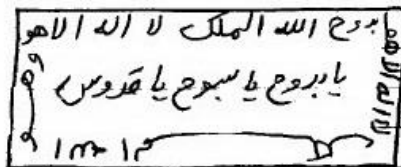 بدوح الله الملك لا اله الا هو
يا بدوح يا سبوح يا قدوس
لا اله الا هو